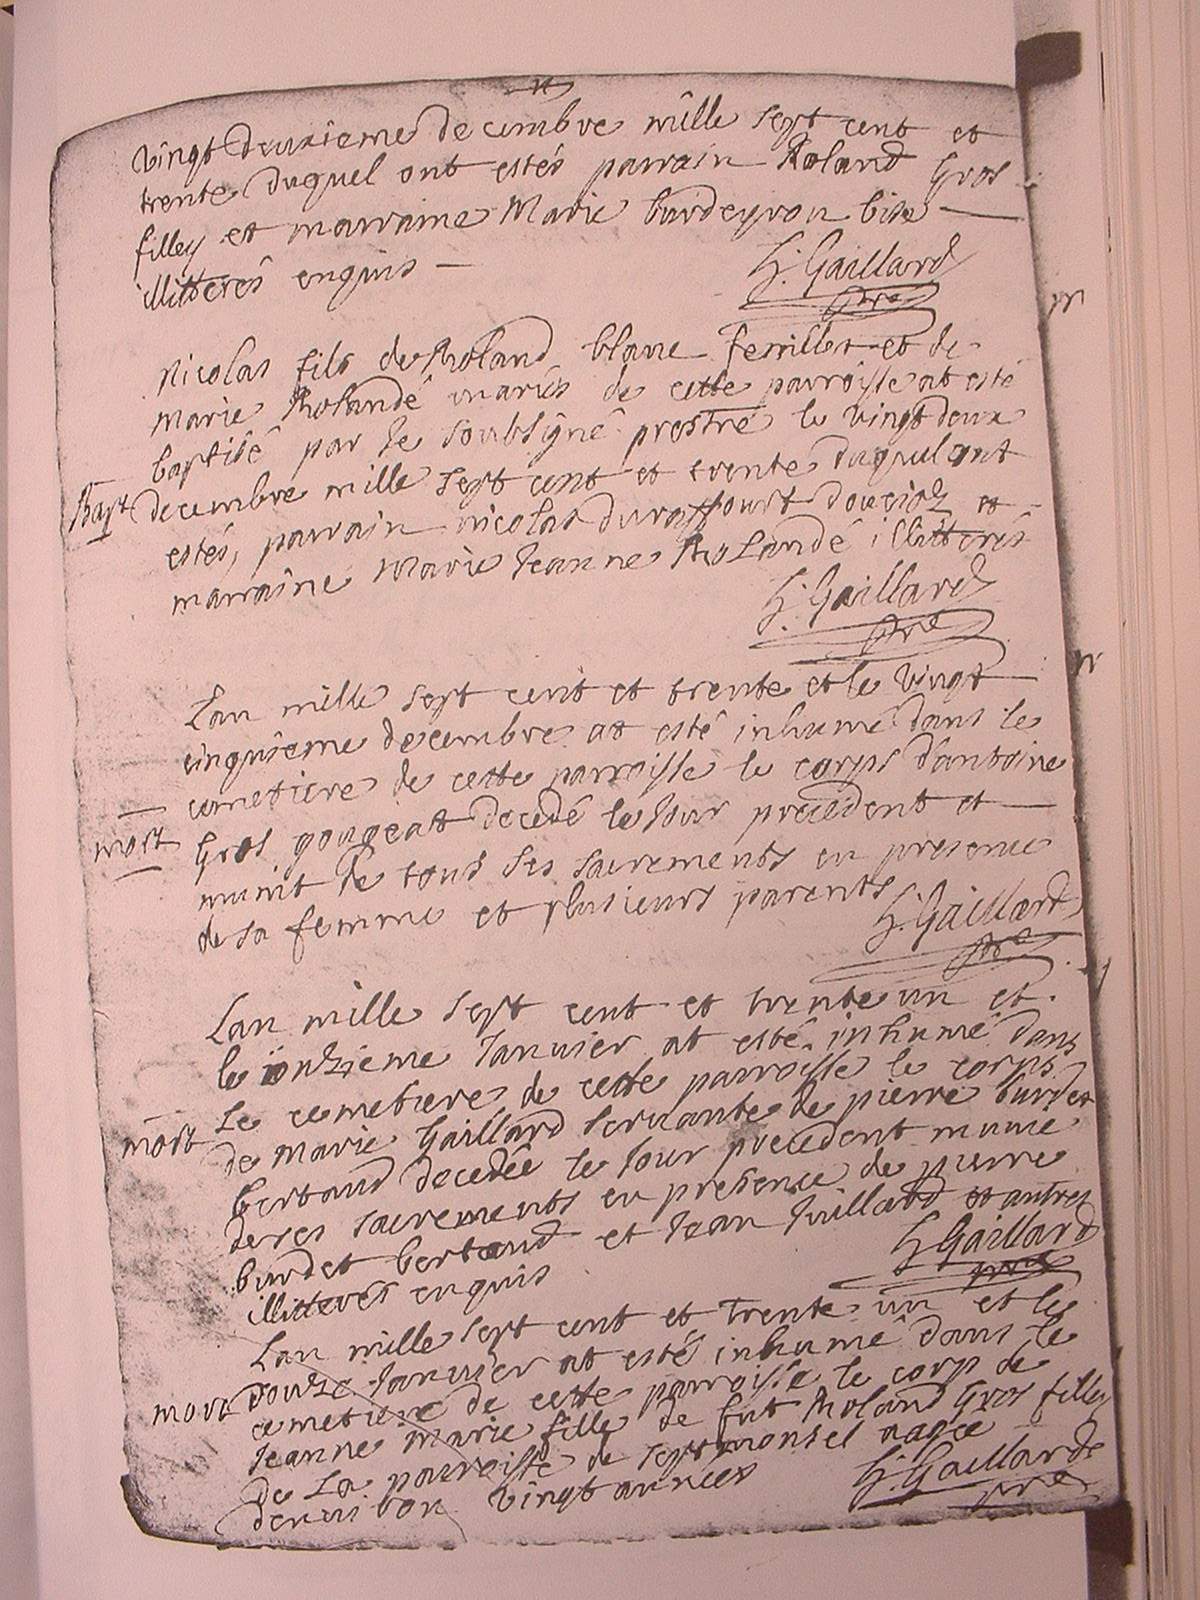 vingtdeuxieme decembre mille sept cent et
trente duquel ont estés parrain Roland Gros
filley et marraine Marie burdeyron bise
illitterés enquis
h: Gaillard
pre
Nicolas fils de Roland blanc ferrillet et de
Marie Rolandé mariés de cette parroisse at esté
baptisé par le soubsigné prestre le vingtdeux
Bapt decembre mille sept cent et trente duquel ont
estés, parrain nicolas duraffourt et
marraine Marie Jeanne Rolandé illitterés
h: Gaillard
pre
Lan mille sept cent et trente et le vingt
cinquieme decembre at esté inhumé dans le
cemetiere de cette parroisse le corps dantoine
mort Gros gougeatt decedé le Jour precedent et
munit de tous ses sacrements en presence
de sa femme et plusieurs parents
h: Gaillard
pre
Lan mille sept cent et trente un et
le onzieme Janvier at esté inhumé dans
Le cemetiere de cette parroisse le corps
mort de Marie Gaillard servante de pierre burdet
bertaud decedée le Jour precedent munie
de ses sacrements en presence de pierre
burdet bertaud et Jean Juillard et autres
illitterés enquis
h Gaillard
pre
Lan mille sept cent et trente un et le
mort douze Janvier at estés inhumé dans le
cemetiere de cette parroisse le corps de
Jeanne Marie fille de fut Roland Gros filley
de La parroisse de septmonsel aagée
denviron vingt années
h: Gaillard
pre